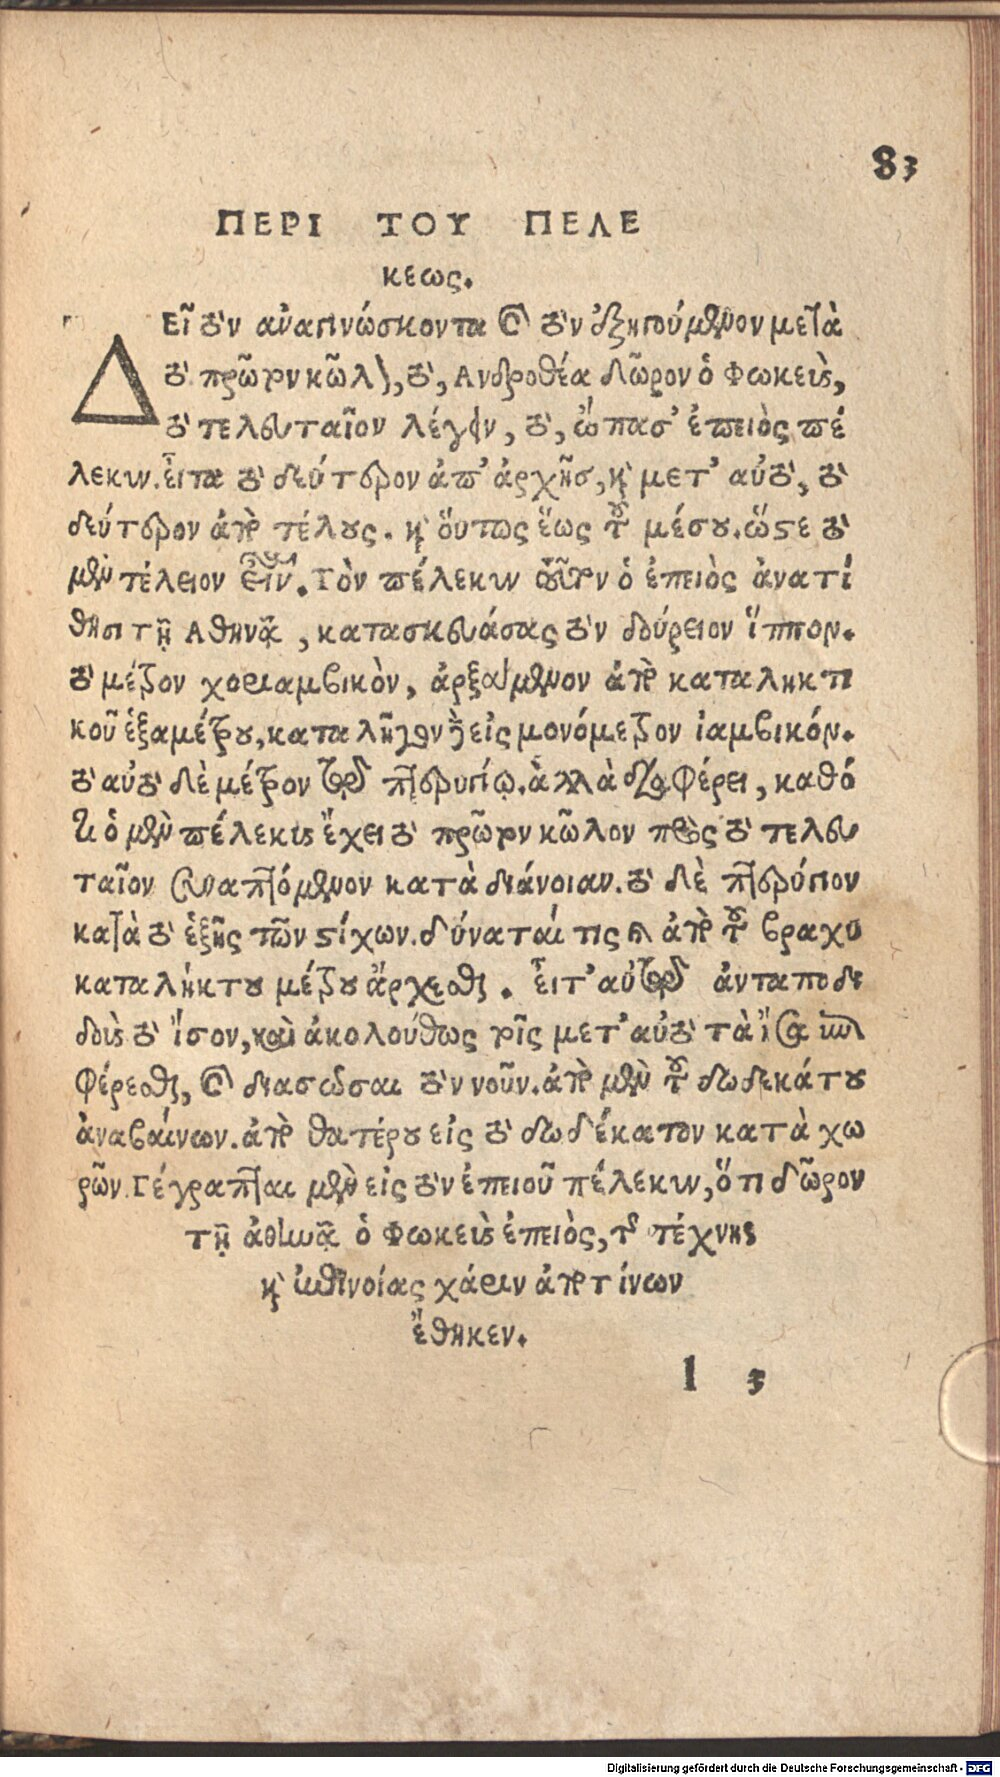 83
ΠΕΡΙ ΤΟΥ ΠΕΛΕ
κεως.
ΔΕῖ τὸν ἀναγινώσκοντα καὶ τὸν ἐξηγούμενον μετὰ
τὸ πρῶτον κῶλον, τὸ, Ανδροθέα δῶρον ὁ Φωκεὺς,
τὸ τελευταῖον λέγειν, τὸ, ὤπασ' ἐπειὸς πέ
λεκυν. εἶτα τὸ δεύτερον ἀπ' ἀρχῆς, καὶ μετ' αὐτὸ, τὸ
δεύτερον ἀπὸ τέλους. καὶ οὕτως ἕως τοῦ μέσου. ὥστε τὸ
μὲν τέλειον εἶναι. Τὸν πέλεκυν τοῦτον ὁ ἐπειὸς ἀνατί
θησι τῇ Αθηνᾷ, κατασκευάσας τὸν δούρειον ἵππον.
τὸ μέτρον χοριαμβικὸν, ἀρξάμενον ἀπὸ καταληκτι
κοῦ ἑξαμέτρου, καταλῆγον δὲ εἰς μονόμετρον ἰαμβικόν.
τὸ αὐτὸ δὲ μέτρον τῷ πτερυγίῳ. ἀλλὰ διαφέρει, καθό
τι ὁ μὲν πέλεκυς ἔχει τὸ πρῶτον κῶλον πρὸς τὸ τελευ
ταῖον συναπτόμενον κατὰ διάνοιαν. τὸ δὲ πτερύγιον
κατὰ τὸ ἑξῆς τῶν στίχων. δύναταί τις καὶ ἀπὸ τοῦ βραχυ
καταλήκτου μέτρου ἄρχεσθαι. εἶτ' αὐτῷ ἀνταποδι
δοὺς τὸ ἴσον, καὶ ἀκολούθως τοῖς μετ' αὐτὸ τὰ ἴσα ἐπι
φέρεσθαι, καὶ διασῶσαι τὸν νοῦν. ἀπὸ μὲν τοῦ δωδεκάτου
ἀναβαίνων. ἀπὸ θατέρου εἰς τὸ δωδέκατον κατὰ χω
ρῶν. Γέγραπται μὲν εἰς τὸν ἐπειοῦ πέλεκυν, ὅτι δῶρον
τῇ ἀθηνᾷ ὁ Φωκεὺς ἐπειὸς, τῆς τέχνης
καὶ ἐπινοίας χάριν ἀποτίνων
ἔθηκεν.
l 3
Digitalisierung gefördert durch die Deutsche Forschungsgemeinschaft - DFG